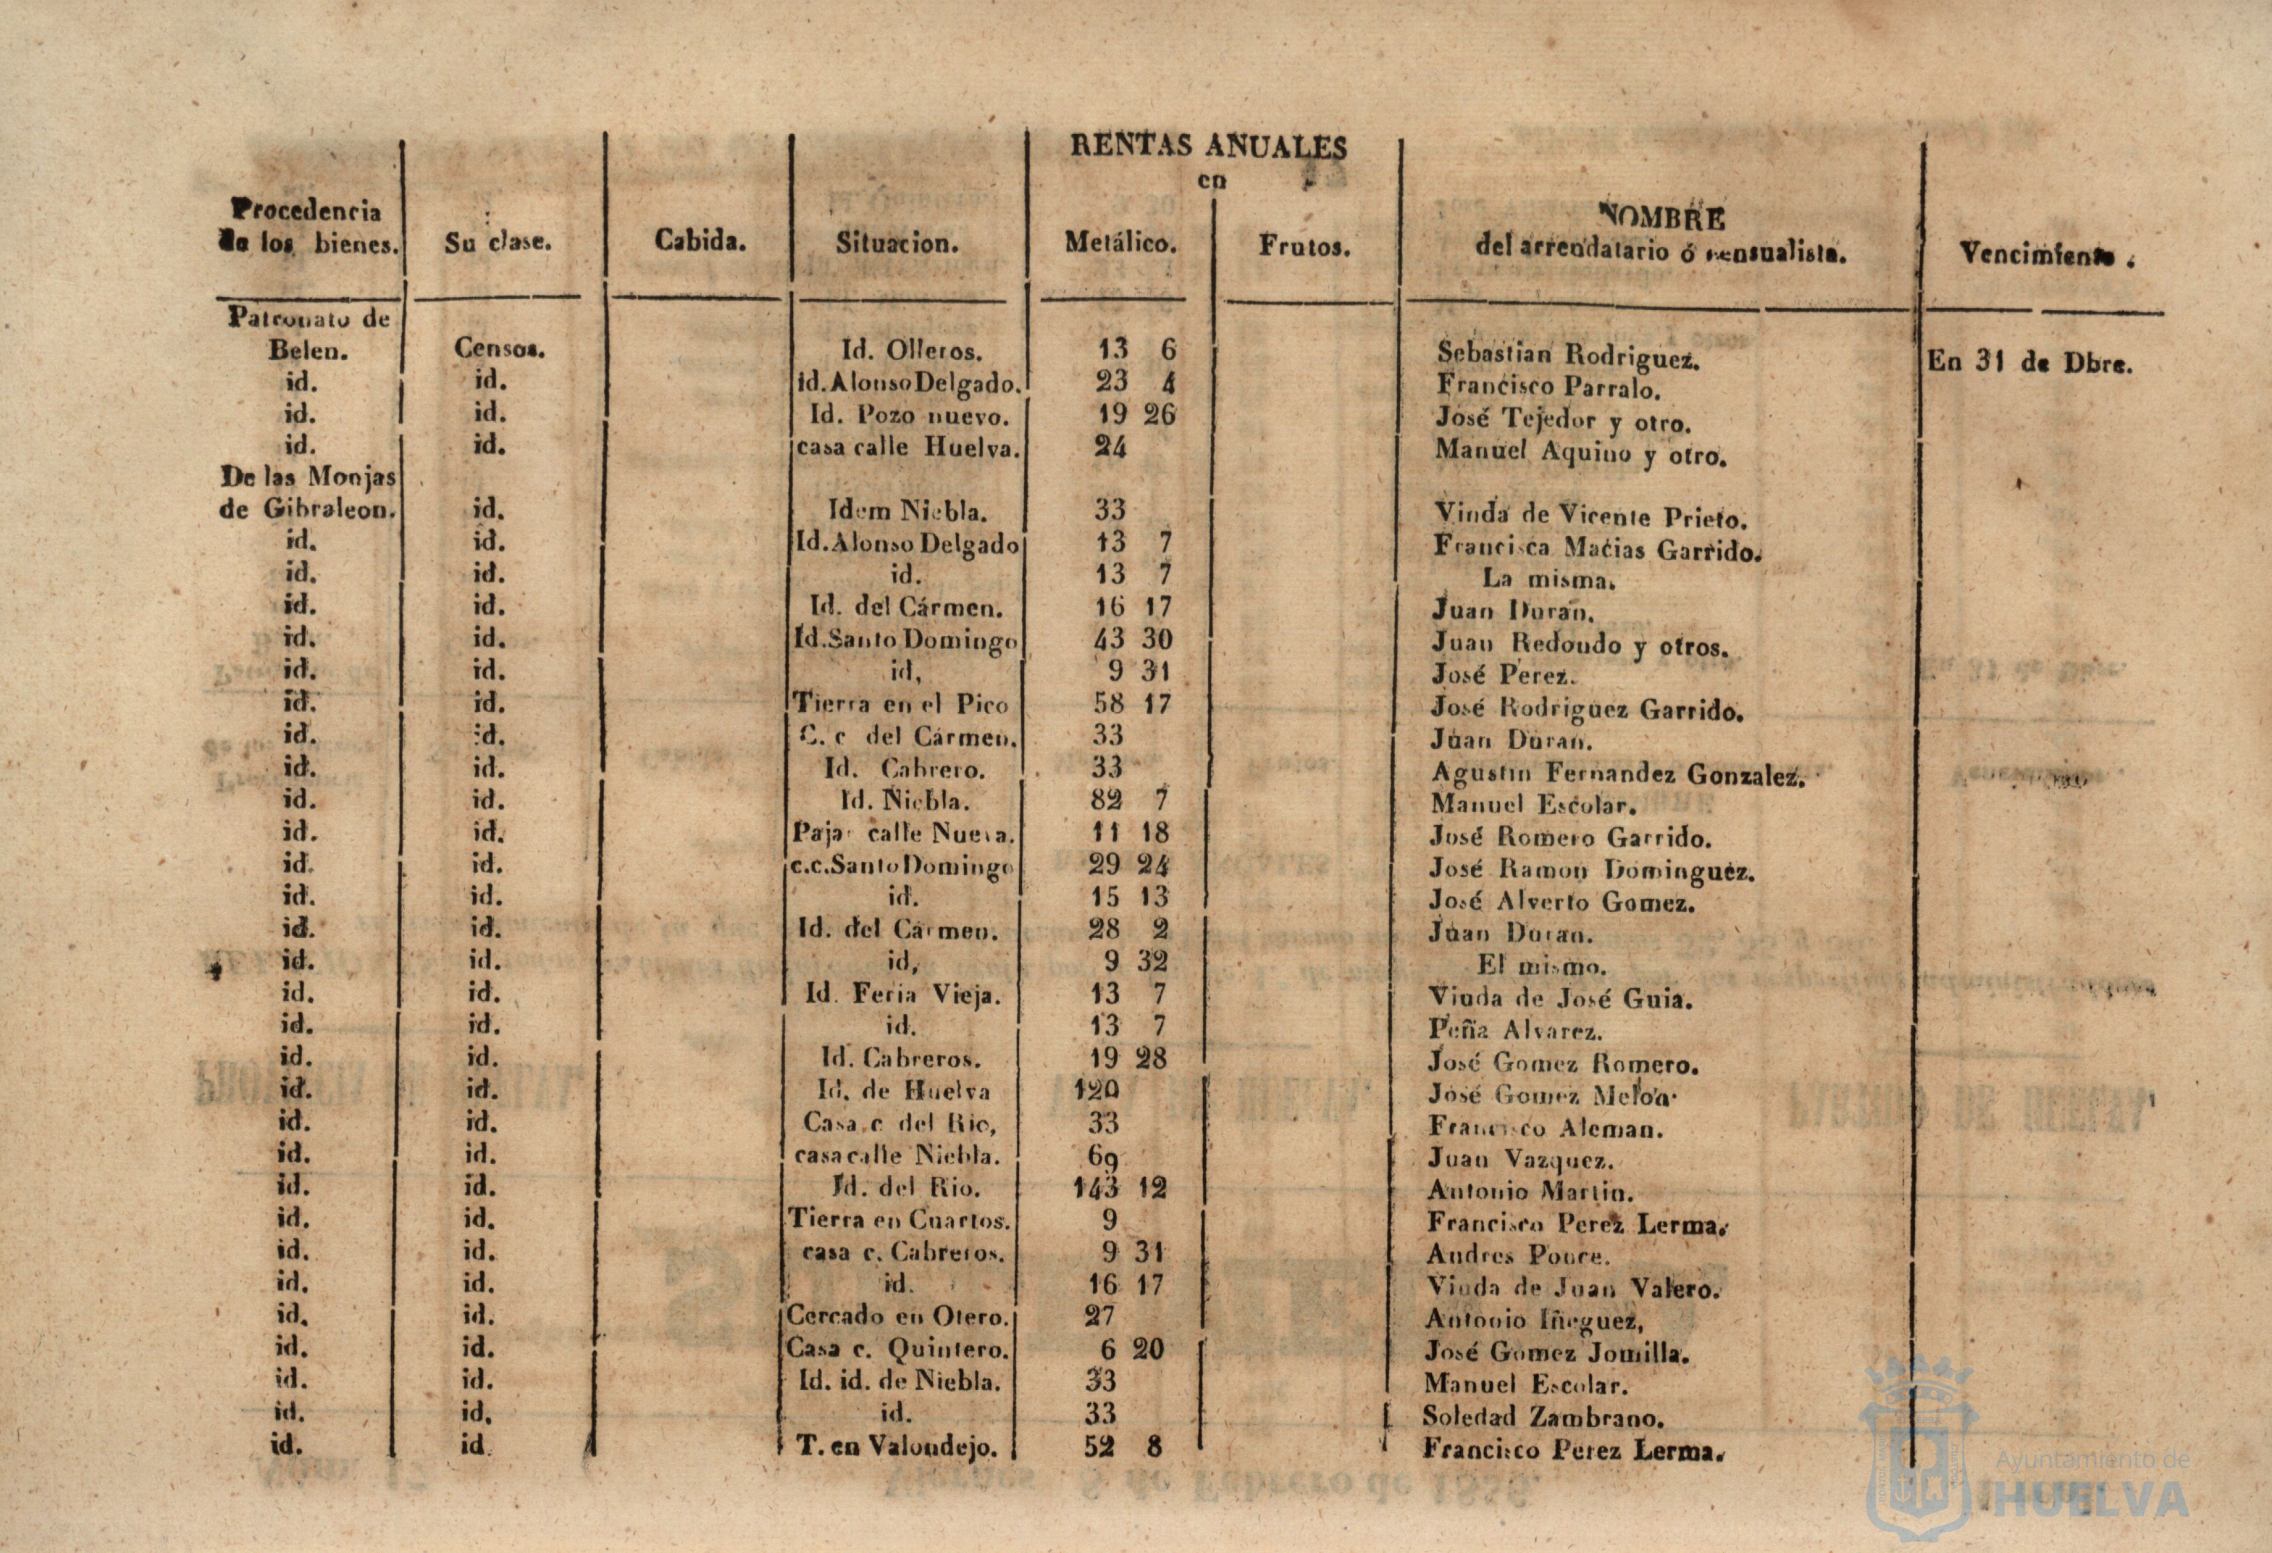 RENTAS ANUALES
en
Procedencia de los bienes. Su clase. Cabida. Situacion. Metálico. Frutos. NOMBRE del arrendatario ó censualista. Vencimiento.
Patronato de
Belen. Censos. Id. Olleros. 13 6 Sebastian Rodriguez. En 31 de Dbre.
id. id. id. Alonso Delgado. 23 4 Francisco Parralo.
id. id. Id. Pozo nuevo. 19 26 José Tejedor y otro.
id. id. casa calle Huelva. 24 Manuel Aquino y otro.
De las Monjas
de Gibraleon. id. Idem Niebla. 33 Viuda de Vicente Prieto.
id. id. Id. Alonso Delgado 13 7 Francisca Macias Garrido.
id. id. id. 13 7 La misma.
id. id. Id. del Cármen. 16 17 Juan Duran.
id. id. Id. Santo Domingo 43 30 Juan Redondo y otros.
id. id. id, 9 31 José Perez.
id. id. Tierra en el Pico 58 17 José Rodriguez Garrido.
id. id. C. c del Cármen. 33 Juan Duran.
id. id. Id. Cabrero. 33 Agustin Fernandez Gonzalez.
id. id. Id. Niebla. 82 7 Manuel Escolar.
id. id. Pajar calle Nueva. 11 18 José Romero Garrido.
id. id. c.c. Santo Domingo 29 24 José Ramon Dominguez.
id. id. id. 15 13 José Alverto Gomez.
id. id. Id. del Carmen. 28 2 Juan Duran.
id. id. id, 9 32 El mismo.
id. id. Id. Feria Vieja. 13 7 Viuda de José Guia.
id. id. id. 13 7 Peña Alvarez.
id. id. Id. Cabreros. 19 28 José Gomez Romero.
id. id. Id. de Huelva 120 José Gomez Melon
id. id. Casa c. del Rio, 33 Francisco Aleman.
id. id. casa calle Niebla. 69 Juan Vazquez.
id. id. Id. del Rio. 143 12 Antonio Martin.
id. id. Tierra en Cuartos. 9 Francisco Perez Lerma.
id. id. casa c. Cabreros. 9 31 Andres Ponce.
id. id. id. 16 17 Viuda de Juan Valero.
id. id. Cercado en Otero. 27 Antonio Iñeguez,
id. id. Casa c. Quintero. 6 20 José Gomez Jomilla.
id. id. Id. id. de Niebla. 33 Manuel Escolar.
id. id. id. 33 Soledad Zambrano.
id. id. T. en Valondejo. 52 8 Francisco Perez Lerma.
Ayuntamiento de
HUELVA